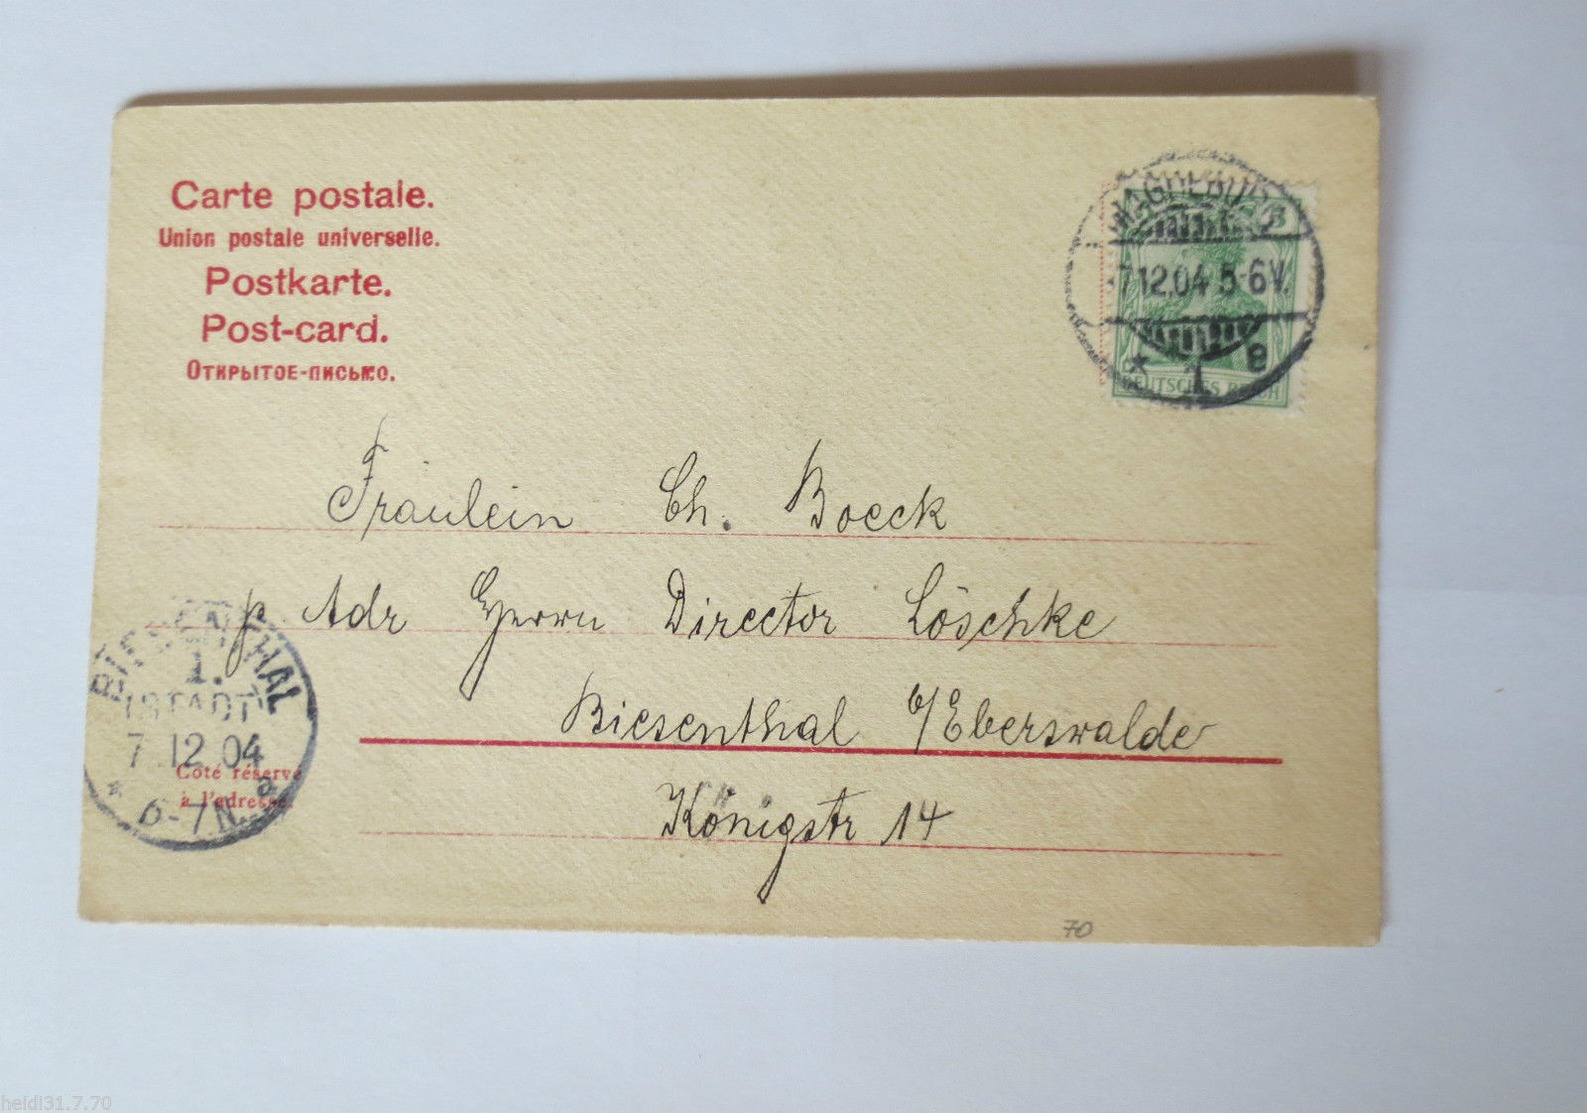 Carte postale.
Union postale universelle.
Postkarte.
Post-card.
Открытое-письмо.
MAGDEBURG
7.12.04 5-6V.
* 1 e
5
DEUTSCHES REICH
Fräulein Ch. Boeck
p. Adr Herrn Director Löschke
Biesenthal b/Eberswalde
Königstr 14
BIESENTHAL
1.
(STADT)
7.12.04
* 6-7N. a
Côté réservé
à l'adresse.
70
heidi31.7.70